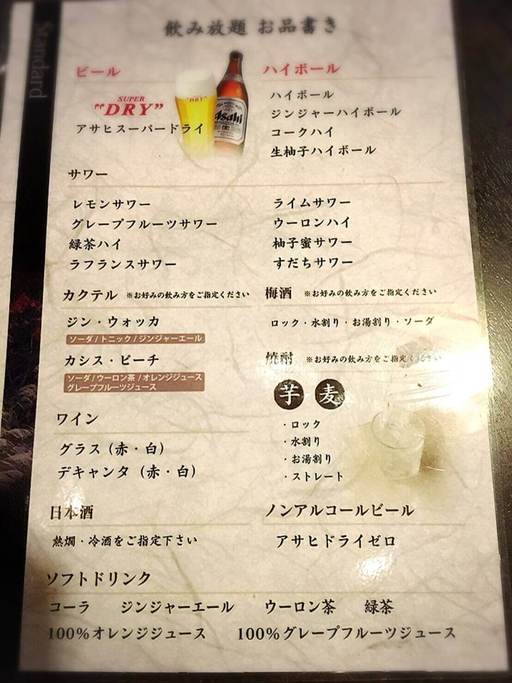 Standard
飲み放題 お品書き
ビール
SUPER
"DRY"
アサヒスーパードライ
DRY
Asahi
ハイボール
ハイボール
ジンジャーハイボール
コークハイ
生柚子ハイボール
サワー
レモンサワー
グレープフルーツサワー
緑茶ハイ
ラフランスサワー
ライムサワー
ウーロンハイ
柚子蜜サワー
すだちサワー
カクテル ※お好みの飲み方をご指定ください
ジン・ウォッカ
ソーダ/トニック/ジンジャーエール
カシス・ピーチ
ソーダ/ウーロン茶/オレンジジュース
グレープフルーツジュース
梅酒 ※お好みの飲み方をご指定ください
ロック・水割り・お湯割り・ソーダ
焼酎 ※お好みの飲み方をご指定ください
芋 麦
・ロック
・水割り
・お湯割り
・ストレート
ワイン
グラス（赤・白）
デキャンタ（赤・白）
日本酒
熱燗・冷酒をご指定下さい
ノンアルコールビール
アサヒドライゼロ
ソフトドリンク
コーラ ジンジャーエール ウーロン茶 緑茶
100%オレンジジュース 100%グレープフルーツジュース